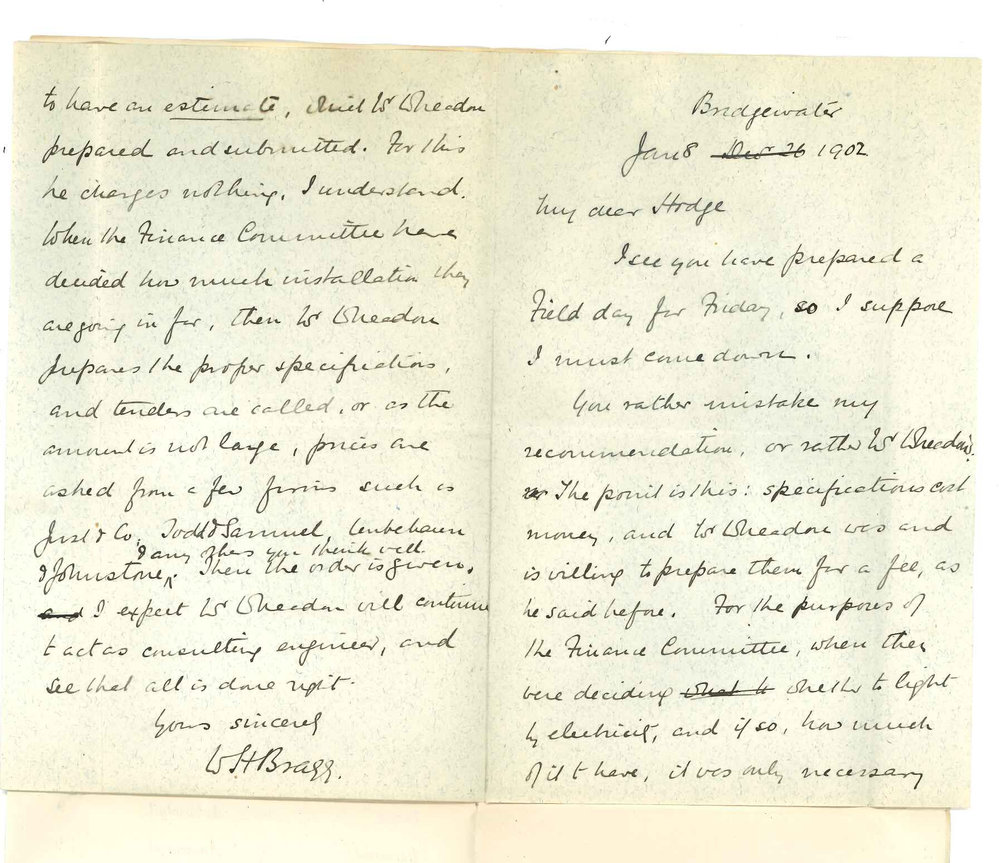 Bridgewater
Jan 8 Decr 26 1902
My dear Hodge
I see you have prepared a
Field day for Friday, so I suppose
I must come down.
You rather mistake my
recommendation, or rather Mr Wheadon's.
The point is this: specifications cost
money, and Mr Wheadon was and
is willing to prepare them for a fee, as
he said before. For the purposes of
the Finance Committee, when they
were deciding what to whether to light
by electricity, and if so, how much
of it to have, it was only necessary
to have an estimate, which Mr Wheadon
prepared and submitted. For this
he charges nothing, I understand.
When the Finance Committee have
decided how much installation they
are going in for, then Mr Wheadon
prepares the proper specifications,
and tenders are called, or as the
amount is not large, prices are
asked from a few firms such as
Just & Co, Todd & Samuel, Unbehaun
& any others you think well
& Johnstone. Then the order is given,
and I expect Mr Wheadon will continue
to act as consulting engineer, and
see that all is done right.
Yours sincerely
W H Bragg.